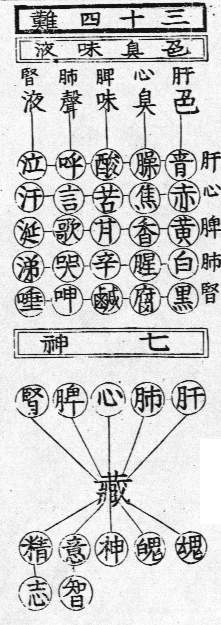 三十四難
色臭味液
肝 心 脾 肺 腎
色 臭 味 聲 液
青 臊 酸 呼 泣 肝
赤 焦 苦 言 汗 心
黄 香 甘 歌 涎 脾
白 腥 辛 哭 涕 肺
黒 腐 鹹 呻 唾 腎
七神
肝 肺 心 脾 腎
藏
魂 魄 神 意 精
智 志